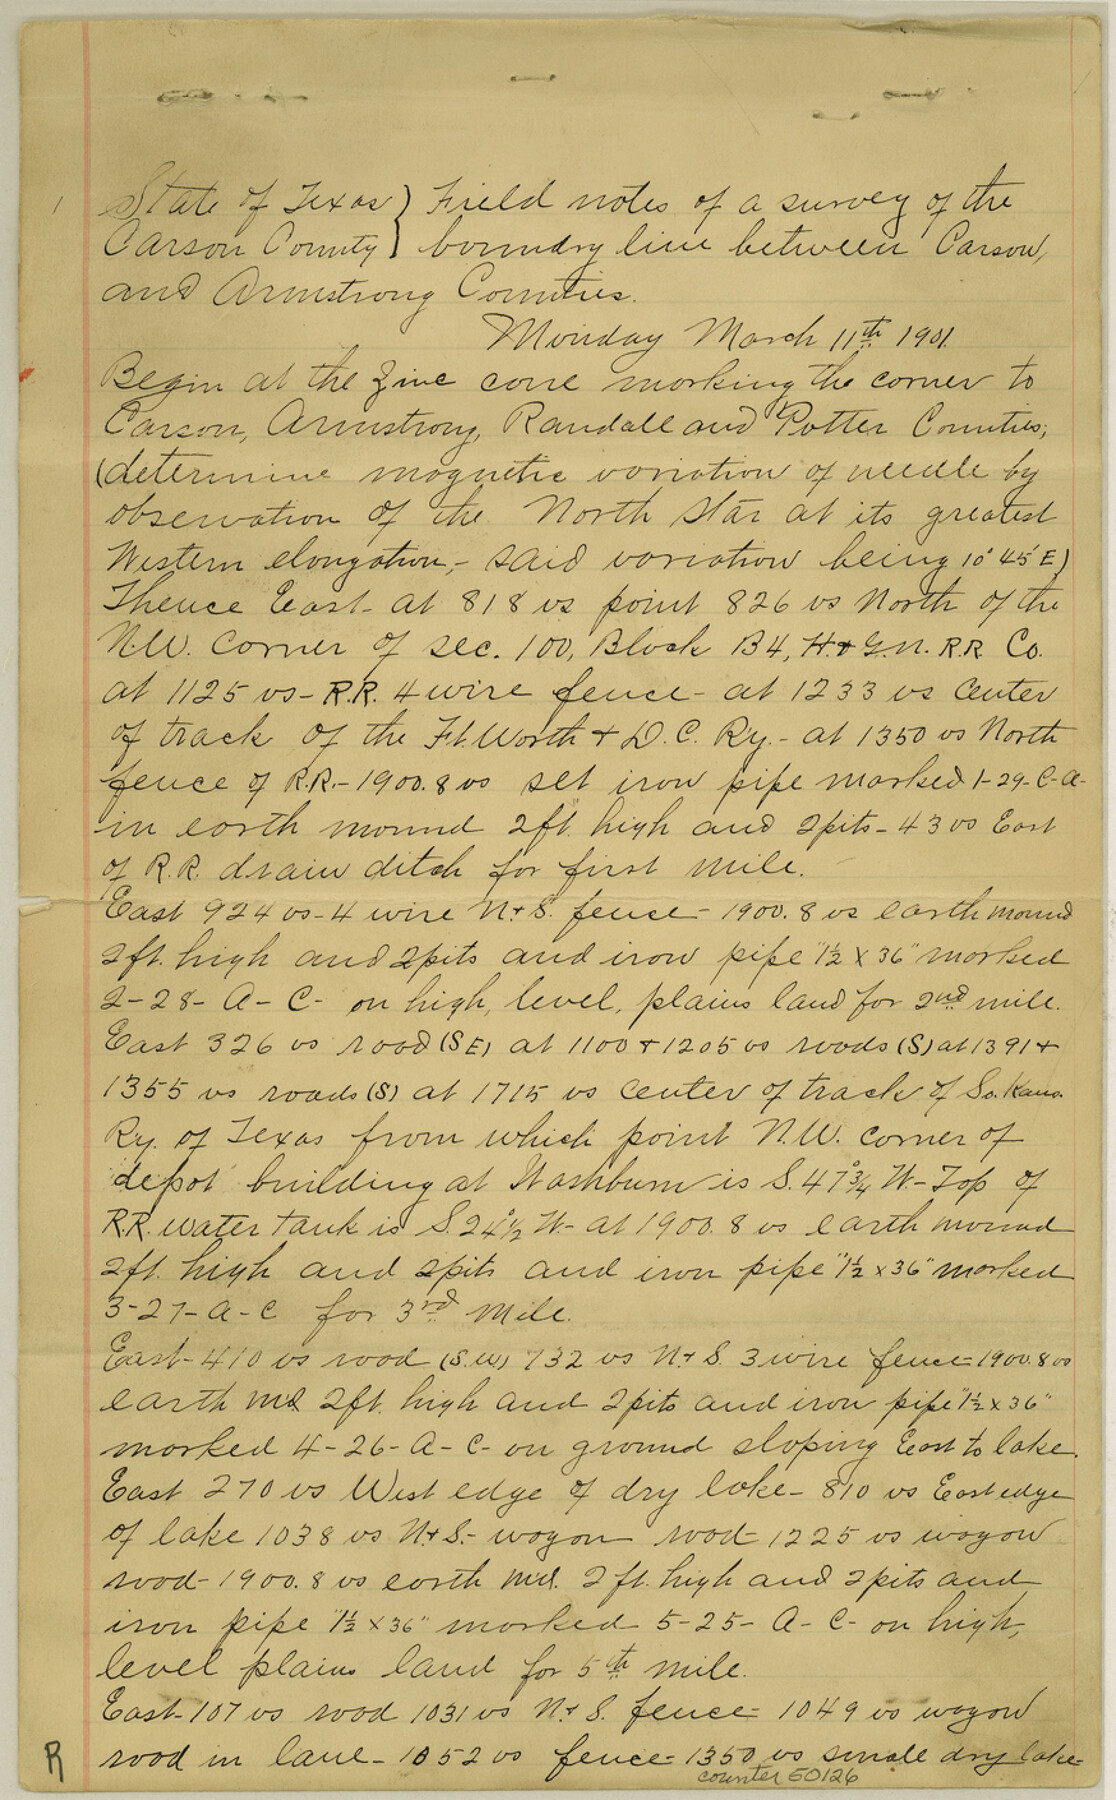 State of Texas } Field notes of a survey of the
Carson County } boundry line between Carson,
and Armstrong Counties.
Monday March 11th 1901.
Begin at the Zinc cone marking the corner to
Carson, Armstrong, Randall and Potter Counties;
(determine magnetic variation of needle by
observation of the North Star at its greatest
Western elongation,- said variation being 10° 45' E)
Thence East- at 818 vs point 826 vs North of the
N.W. Corner of sec. 100, Block B4, H. & G.N. R.R. Co.
at 1125 vs- R.R. 4 wire fence- at 1233 vs center
of track of the Ft. Worth & D.C. Ry.- at 1350 vs North
fence of R.R.- 1900.8 vs set iron pipe marked 1-29-C-A-
in earth mound 2ft. high and 2pits- 43 vs East
of R.R. drain ditch for first mile.
East 924 vs- 4 wire N.& S. fence- 1900.8 vs earth mound
2ft. high and 2pits and iron pipe "1½ x 36" marked
2-28- A- C- on high, level, plains land for 2nd mile.
East 326 vs road (SE) at 1100 & 1205 vs roads (S) at 1391 &
1355 vs roads (S) at 1715 vs center of track of So. Kans.
Ry. of Texas from which point N.W. corner of
depot building at Washburn is S. 47¾° W- Top of
R.R. water tank is S. 24½° W- at 1900.8 vs earth mound
2ft. high and 2pits and iron pipe "1½ x 36" marked
3-27-A-C for 3rd mile.
East- 410 vs road (S.W.) 732 vs N.& S. 3 wire fence- 1900.8 vs
earth md. 2ft. high and 2pits and iron pipe "1½ x 36"
marked 4-26-A-C- on ground sloping East to lake.
East 270 vs West edge of dry lake- 810 vs East edge
of lake 1038 vs N.& S.- wagon road- 1225 vs wagon
road- 1900.8 vs earth md. 2 ft. high and 2pits and
iron pipe "1½ x 36" marked 5-25- A- C- on high,
level plains land for 5th mile.
East- 107 vs road 1031 vs N.& S. fence- 1049 vs wagon
road in lane- 1052 vs fence- 1350 vs small dry lake-
counter 50126
R